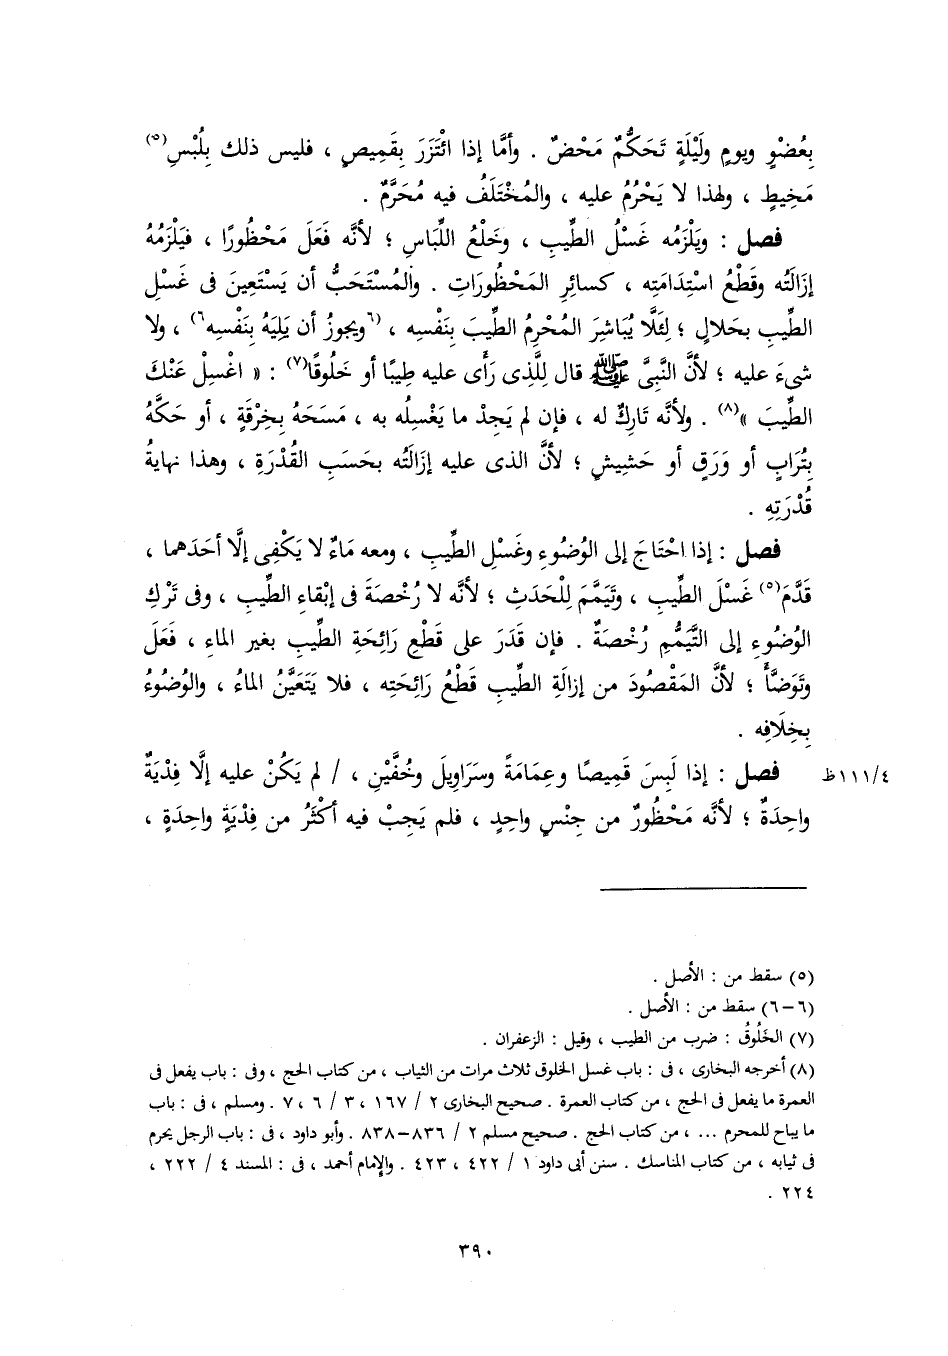 بِعُضْوٍ ويومٍ ولَيْلَةٍ تَحَكُّمٌ مَحْضٌ . وأمَّا إذا ائْتَزَرَ بِقَمِيصٍ ، فليس ذلك بِلُبْسِ(٥)
مَخِيطٍ ، ولهذا لا يَحْرُمُ عليه ، والمُخْتَلَفُ فيه مُحَرَّمٌ .
فصل : ويَلْزَمُه غَسْلُ الطِّيبِ ، وخَلْعُ اللِّبَاسِ ؛ لأنَّه فَعَلَ مَحْظُورًا ، فيَلْزَمُهُ
إزَالَتُه وقَطْعُ اسْتِدَامَتِه ، كسائِرِ المَحْظُورَاتِ . والمُسْتَحَبُّ أن يَسْتَعِينَ فى غَسْلِ
الطِّيبِ بحَلالٍ ؛ لِئَلَّا يُبَاشِرَ المُحْرِمُ الطِّيبَ بِنَفْسِه ، (٦ويجوزُ أن يَلِيَهُ بِنَفْسِه٦) ، ولا
شىءَ عليه ؛ لأنَّ النَّبِىَّ ﷺ قال لِلَّذِى رَأَى عليه طِيبًا أو خَلُوقًا(٧) : « اغْسِلْ عَنْكَ
الطِّيبَ »(٨) . ولأنَّه تَارِكٌ له ، فإن لم يَجِدْ ما يَغْسِلُه به ، مَسَحَهُ بِخِرْقَةٍ ، أو حَكَّهُ
بِتُرَابٍ أو وَرَقٍ أو حَشِيشٍ ؛ لأنَّ الذى عليه إزَالَتُه بحَسَبِ القُدْرَةِ ، وهذا نهايةُ
قُدْرَتِهِ .
فصل : إذا احْتَاجَ إلى الوُضُوءِ وغَسْلِ الطِّيبِ ، ومعه مَاءٌ لا يَكْفِى إلَّا أحَدَهما ،
قَدَّمَ(٥) غَسْلَ الطِّيبِ ، وتَيَمَّمَ لِلْحَدَثِ ؛ لأنَّه لا رُخْصَةَ فى إبْقاءِ الطِّيبِ ، وفى تَرْكِ
الوُضُوءِ إلى التَّيَمُّمِ رُخْصَةٌ . فإن قَدَرَ على قَطْعِ رَائِحَةِ الطِّيبِ بغيرِ الماءِ ، فَعَلَ
وتَوَضَّأَ ؛ لأنَّ المَقْصُودَ من إزالَةِ الطِّيبِ قَطْعُ رَائِحَتِه ، فلا يَتَعَيَّنُ الماءُ ، والوُضُوءُ
بِخِلَافِه .
فصل : إذا لَبِسَ قَمِيصًا وعِمَامَةً وسَرَاوِيلَ وخُفَّيْنِ ، / لم يَكُنْ عليه إلَّا فِدْيَةٌ ٤/١١١ظ
واحِدَةٌ ؛ لأنَّه مَحْظُورٌ من جِنْسٍ واحِدٍ ، فلم يَجِبْ فيه أكْثَرُ من فِدْيَةٍ واحِدَةٍ ،
(٥) سقط من : الأصل .
(٦-٦) سقط من : الأصل .
(٧) الخَلُوقُ : ضرب من الطيب ، وقيل : الزعفران .
(٨) أخرجه البخارى ، فى : باب غسل الخلوق ثلاث مرات من الثياب ، من كتاب الحج ، وفى : باب يفعل فى
العمرة ما يفعل فى الحج ، من كتاب العمرة . صحيح البخارى ٢ / ١٦٧ ، ٣ / ٦ ، ٧ . ومسلم ، فى : باب
ما يباح للمحرم ... ، من كتاب الحج . صحيح مسلم ٢ / ٨٣٦-٨٣٨ . وأبو داود ، فى : باب الرجل يحرم
فى ثيابه ، من كتاب المناسك . سنن أبى داود ١ / ٤٢٢ ، ٤٢٣ . والإمام أحمد ، فى : المسند ٤ / ٢٢٢ ،
٢٢٤ .
٣٩٠